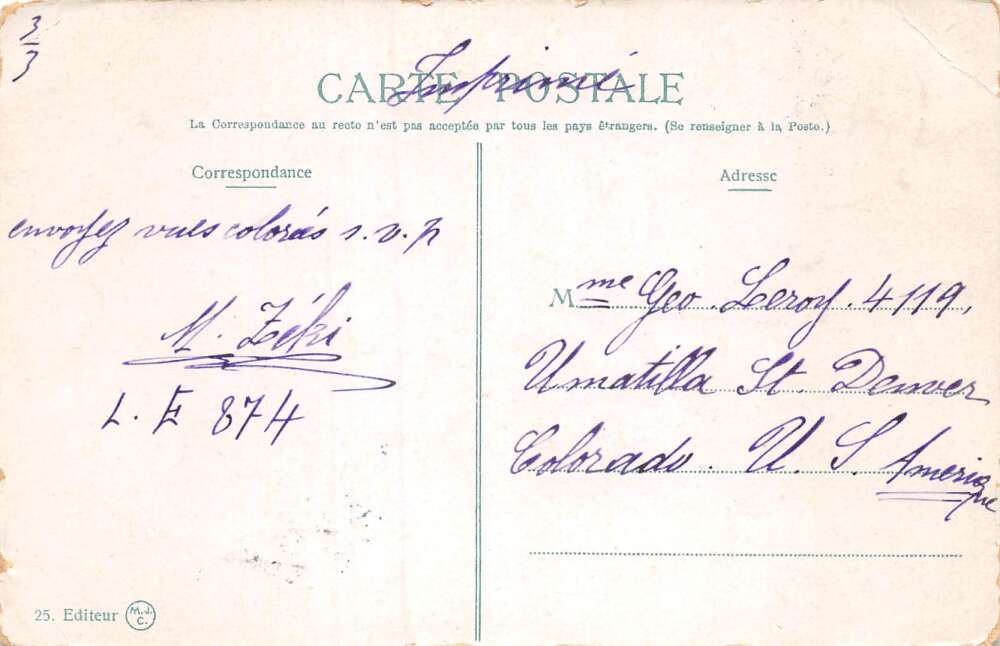 3/3
Imprimé
CARTE POSTALE
La Correspondance au recto n'est pas acceptée par tous les pays étrangers. (Se renseigner à la Poste.)
Correspondance
envoyez vues coloriés s.v.p
M. Zéki
L. E 874
Adresse
Mme Geo. Leroy. 4119,
Umatilla St. Denver
Colorado. U. S. Amerique
25. Editeur M.J.C.